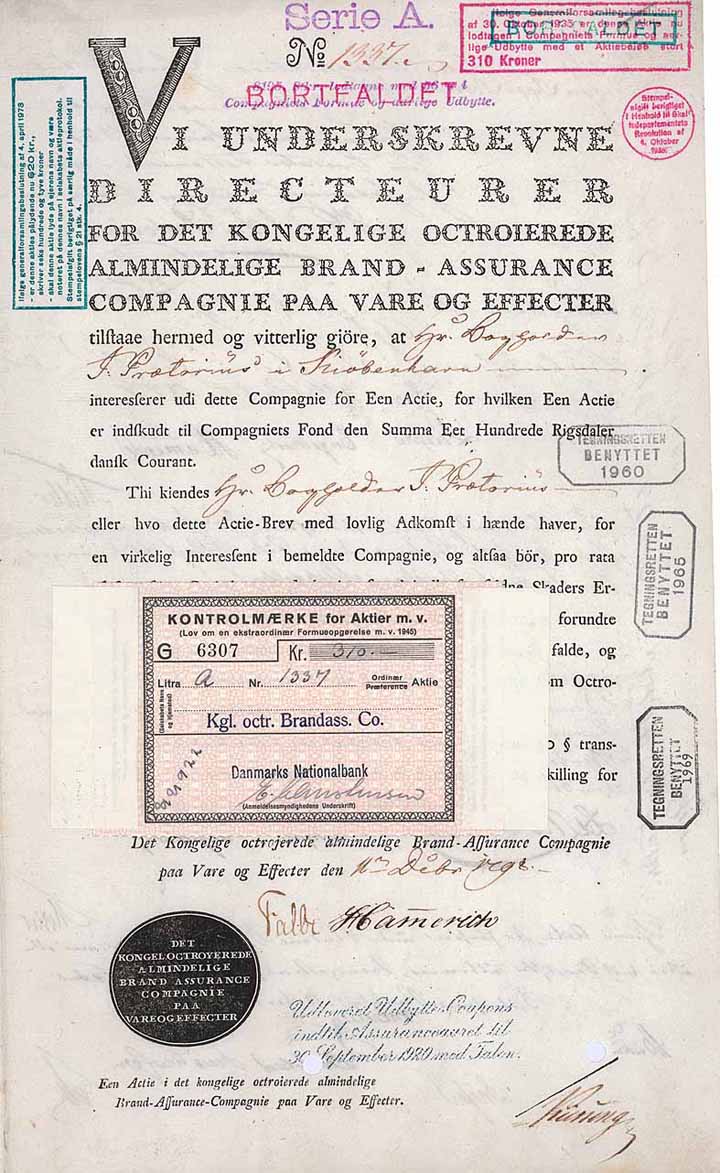 Serie A.
No. 1337.
Ifølge Generalforsamlingsbeslutning
af 30. Oktober 1935 er denne Aktie nu
lodtagen i Compagniets Formue og aar-
lige Udbytte med et Aktiebeløb stort
310 Kroner
BORTFALDET
BORTFALDET
Compagniets Formue og aarlige Udbytte.
Stempel-
afgift berigtiget
i Henhold til Skat-
tedepartementets
Resolution af
4. Oktober
1935.
Ifølge generalforsamlingsbeslutning af 4. april 1973
- er denne akties pålydende nu 620 kr.,
skriver seks hundrede og tyve kroner
- skal denne aktie lyde på ejerens navn og være
noteret på dennes navn i selskabets aktieprotokol.
Stempelafgift berigtiget på særlig måde i henhold til
stempelovens § 21 stk. 4
VI UNDERSKREVNE
DIRECTEURER
FOR DET KONGELIGE OCTROIEREDE
ALMINDELIGE BRAND - ASSURANCE
COMPAGNIE PAA VARE OG EFFECTER
tilſtaae hermed og vitterlig giöre, at Hr. Bogholder
J. Prætorius i Kiöbenhavn
intereſſerer udi dette Compagnie for Een Actie, for hvilken Een Actie
er indſkudt til Compagniets Fond den Summa Eet Hundrede Rigsdaler
danſk Courant.
TEGNINGSRETTEN
BENYTTET
1960
Thi kiendes Hr. Bogholder J. Prætorius
eller hvo dette Actie-Brev med lovlig Adkomſt i hænde haver, for
en virkelig Intereſſent i bemeldte Compagnie, og altſaa bör, pro rata
Skaders Er-
forundte
falde, og
m Octro-
TEGNINGSRETTEN
BENYTTET
1965
KONTROLMÆRKE for Aktier m. v.
(Lov om en ekstraordinær Formueopgørelse m. v. 1945)
G 6307 Kr. 310.-
Litra A Nr. 1337 Ordinær Præference Aktie
(Selskabets Navn og Hjemsted)
Kgl. octr. Brandass. Co.
Danmarks Nationalbank
(Anmeldelsesmyndighedens Underskrift)
§ trans-
killing for
TEGNINGSRETTEN
BENYTTET
1969
Det Kongelige octrojerede almindelige Brand-Aſſurance Compagnie
paa Vare og Effecter den
Falbe Hamerich
DET
KONGEL OCTROYEREDE
ALMINDELIGE
BRAND ASSURANCE
COMPAGNIE
PAA
VARE OG EFFECTER
Udleveret Udbytte-Coupons
indtil Assuranceaaret til
30 September 1920 med Talon.
Een Actie i det kongelige octroierede almindelige
Brand-Aſſurance-Compagnie paa Vare og Effecter.